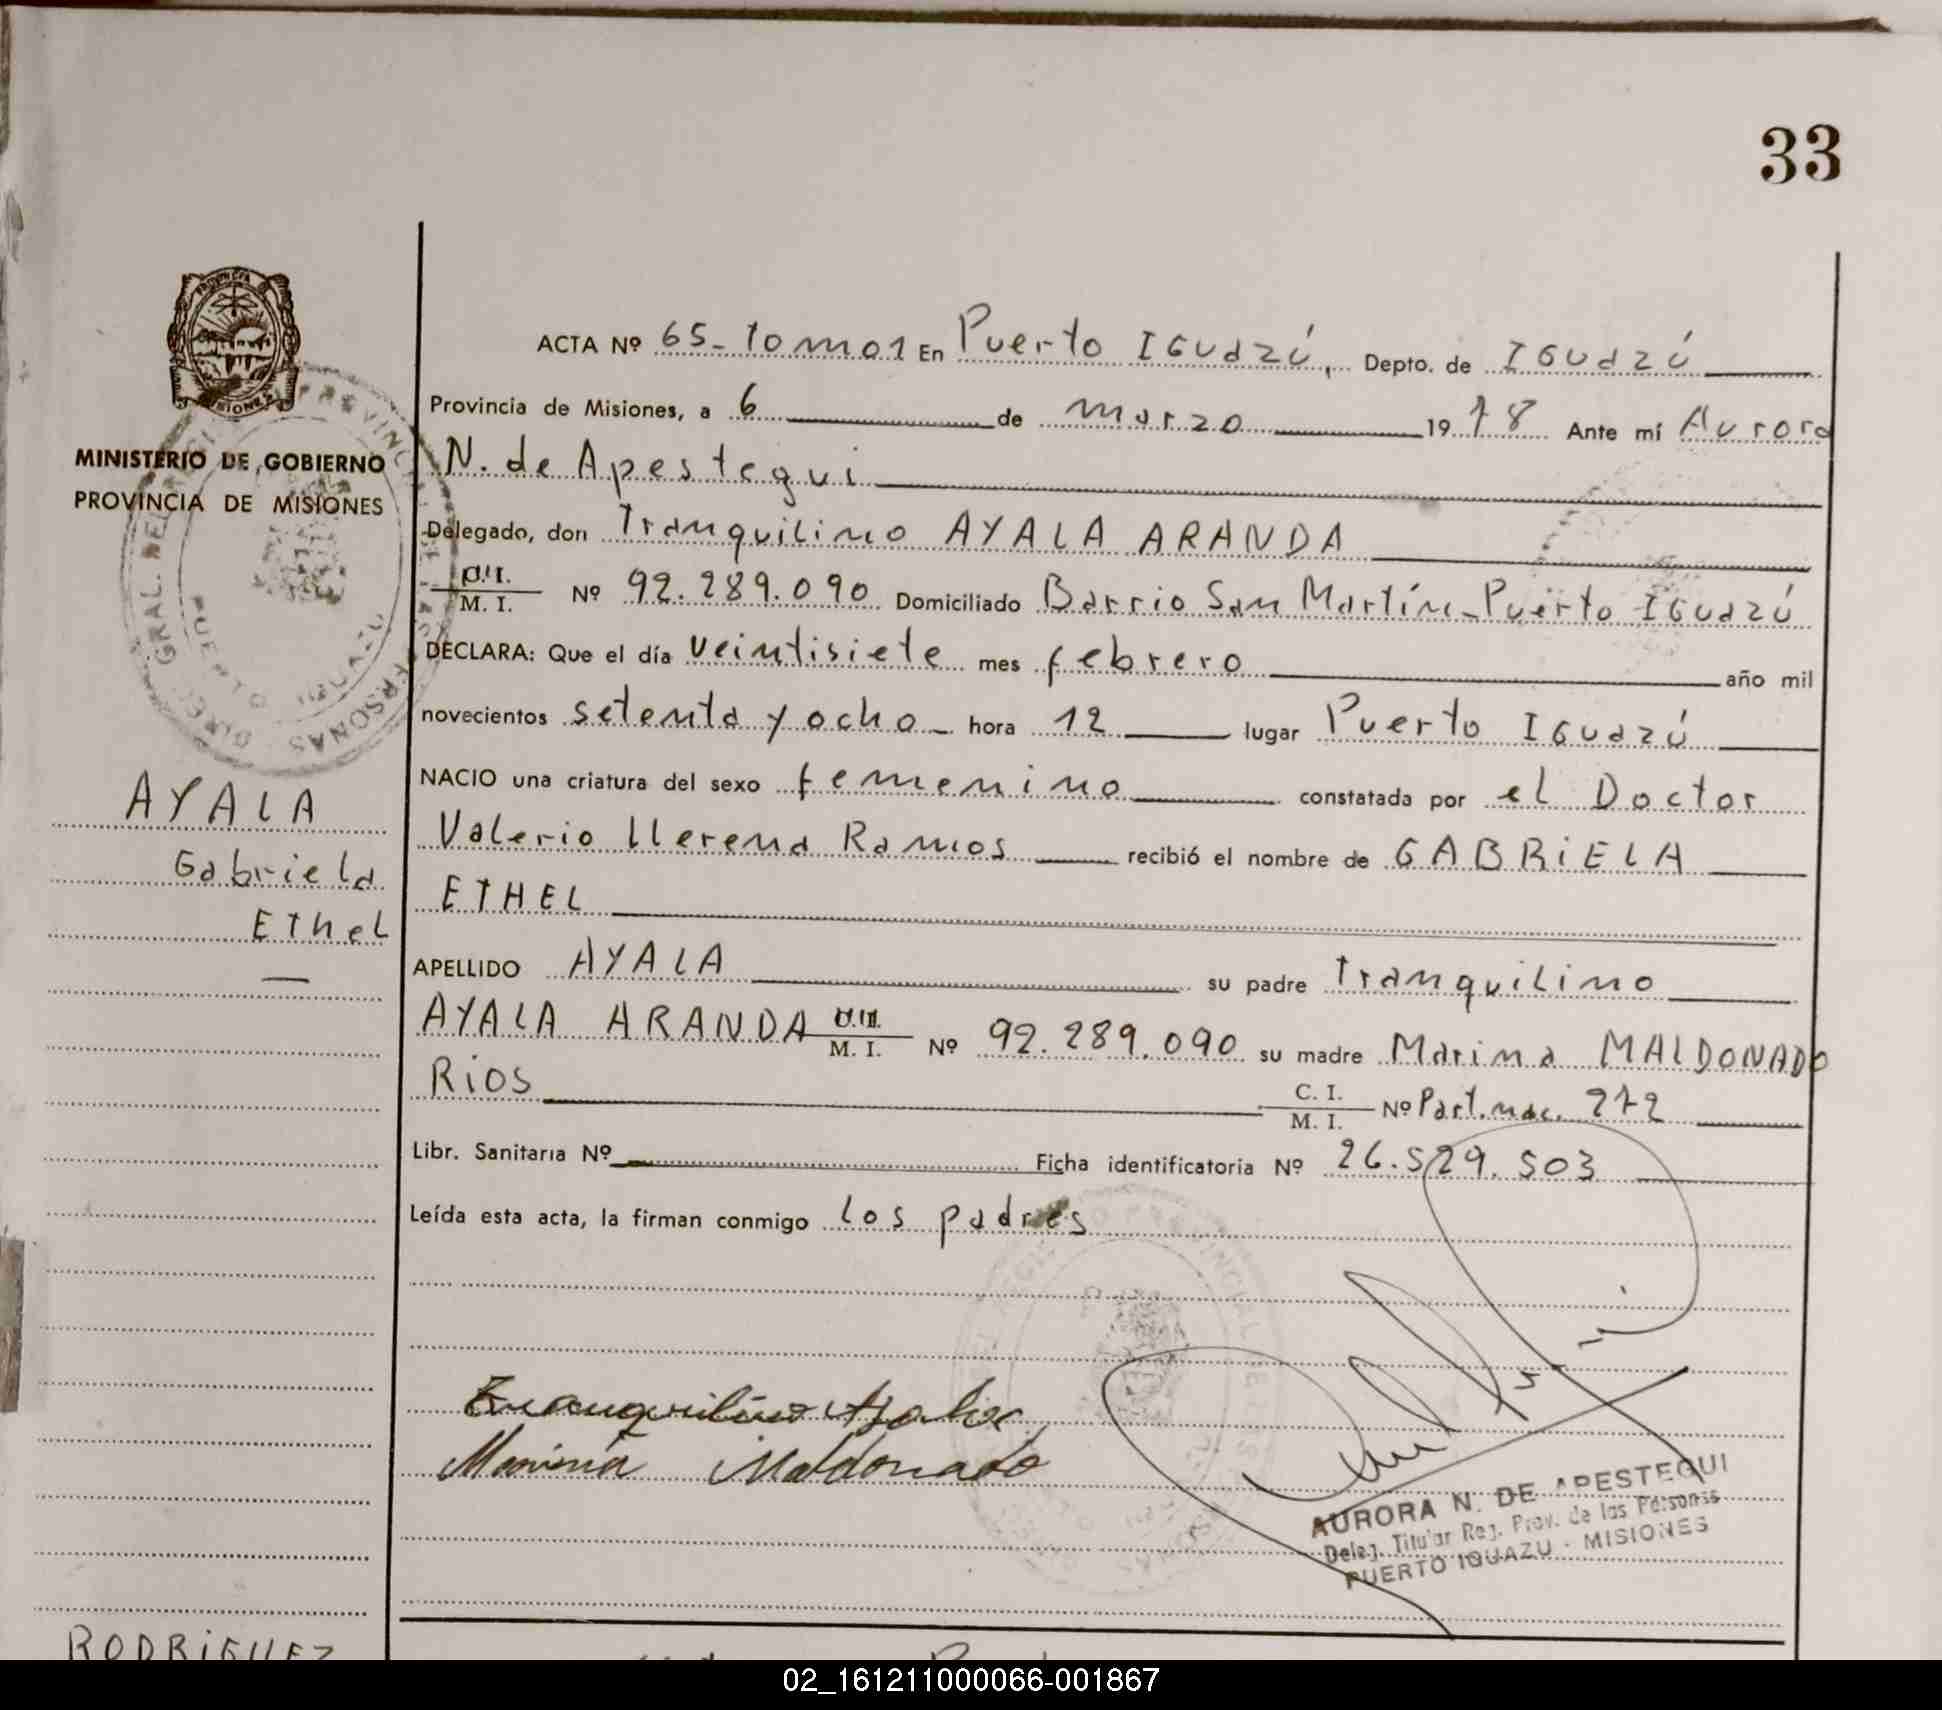 33
MINISTERIO DE GOBIERNO
PROVINCIA DE MISIONES
AYALA
Gabriela
Ethel
ACTA Nº 65-Tomo1 En Puerto IGuazú, Depto. de IGuazú
Provincia de Misiones, a 6 de marzo 1978 Ante mí Aurora
N. de Apestegui
Delegado, don Tranquilino AYALA ARANDA
M. I. Nº 92.289.090 Domiciliado Barrio San Martín-Puerto IGuazú
DECLARA: Que el día veintisiete mes febrero año mil
novecientos setenta y ocho hora 12 lugar Puerto IGuazú
NACIO una criatura del sexo femenino constatada por el Doctor
Valerio Llerena Ramos recibió el nombre de GABRiELA
ETHEL
APELLIDO AYALA su padre Tranquilino
AYALA ARANDA M. I. Nº 92.289.090 su madre Marina MALDONADO
RiOS C. I. M. I. Nº Part.nac. 272
Libr. Sanitaria Nº Ficha identificatoria Nº 26.529.503
Leída esta acta, la firman conmigo los padres
Tranquilino Ayala
Marina Maldonado
AURORA N. DE APESTEGUI
Deleg. Titular Reg. Prov. de las Personas
PUERTO IGUAZU - MISIONES
RODRiGUEZ
02_161211000066-001867